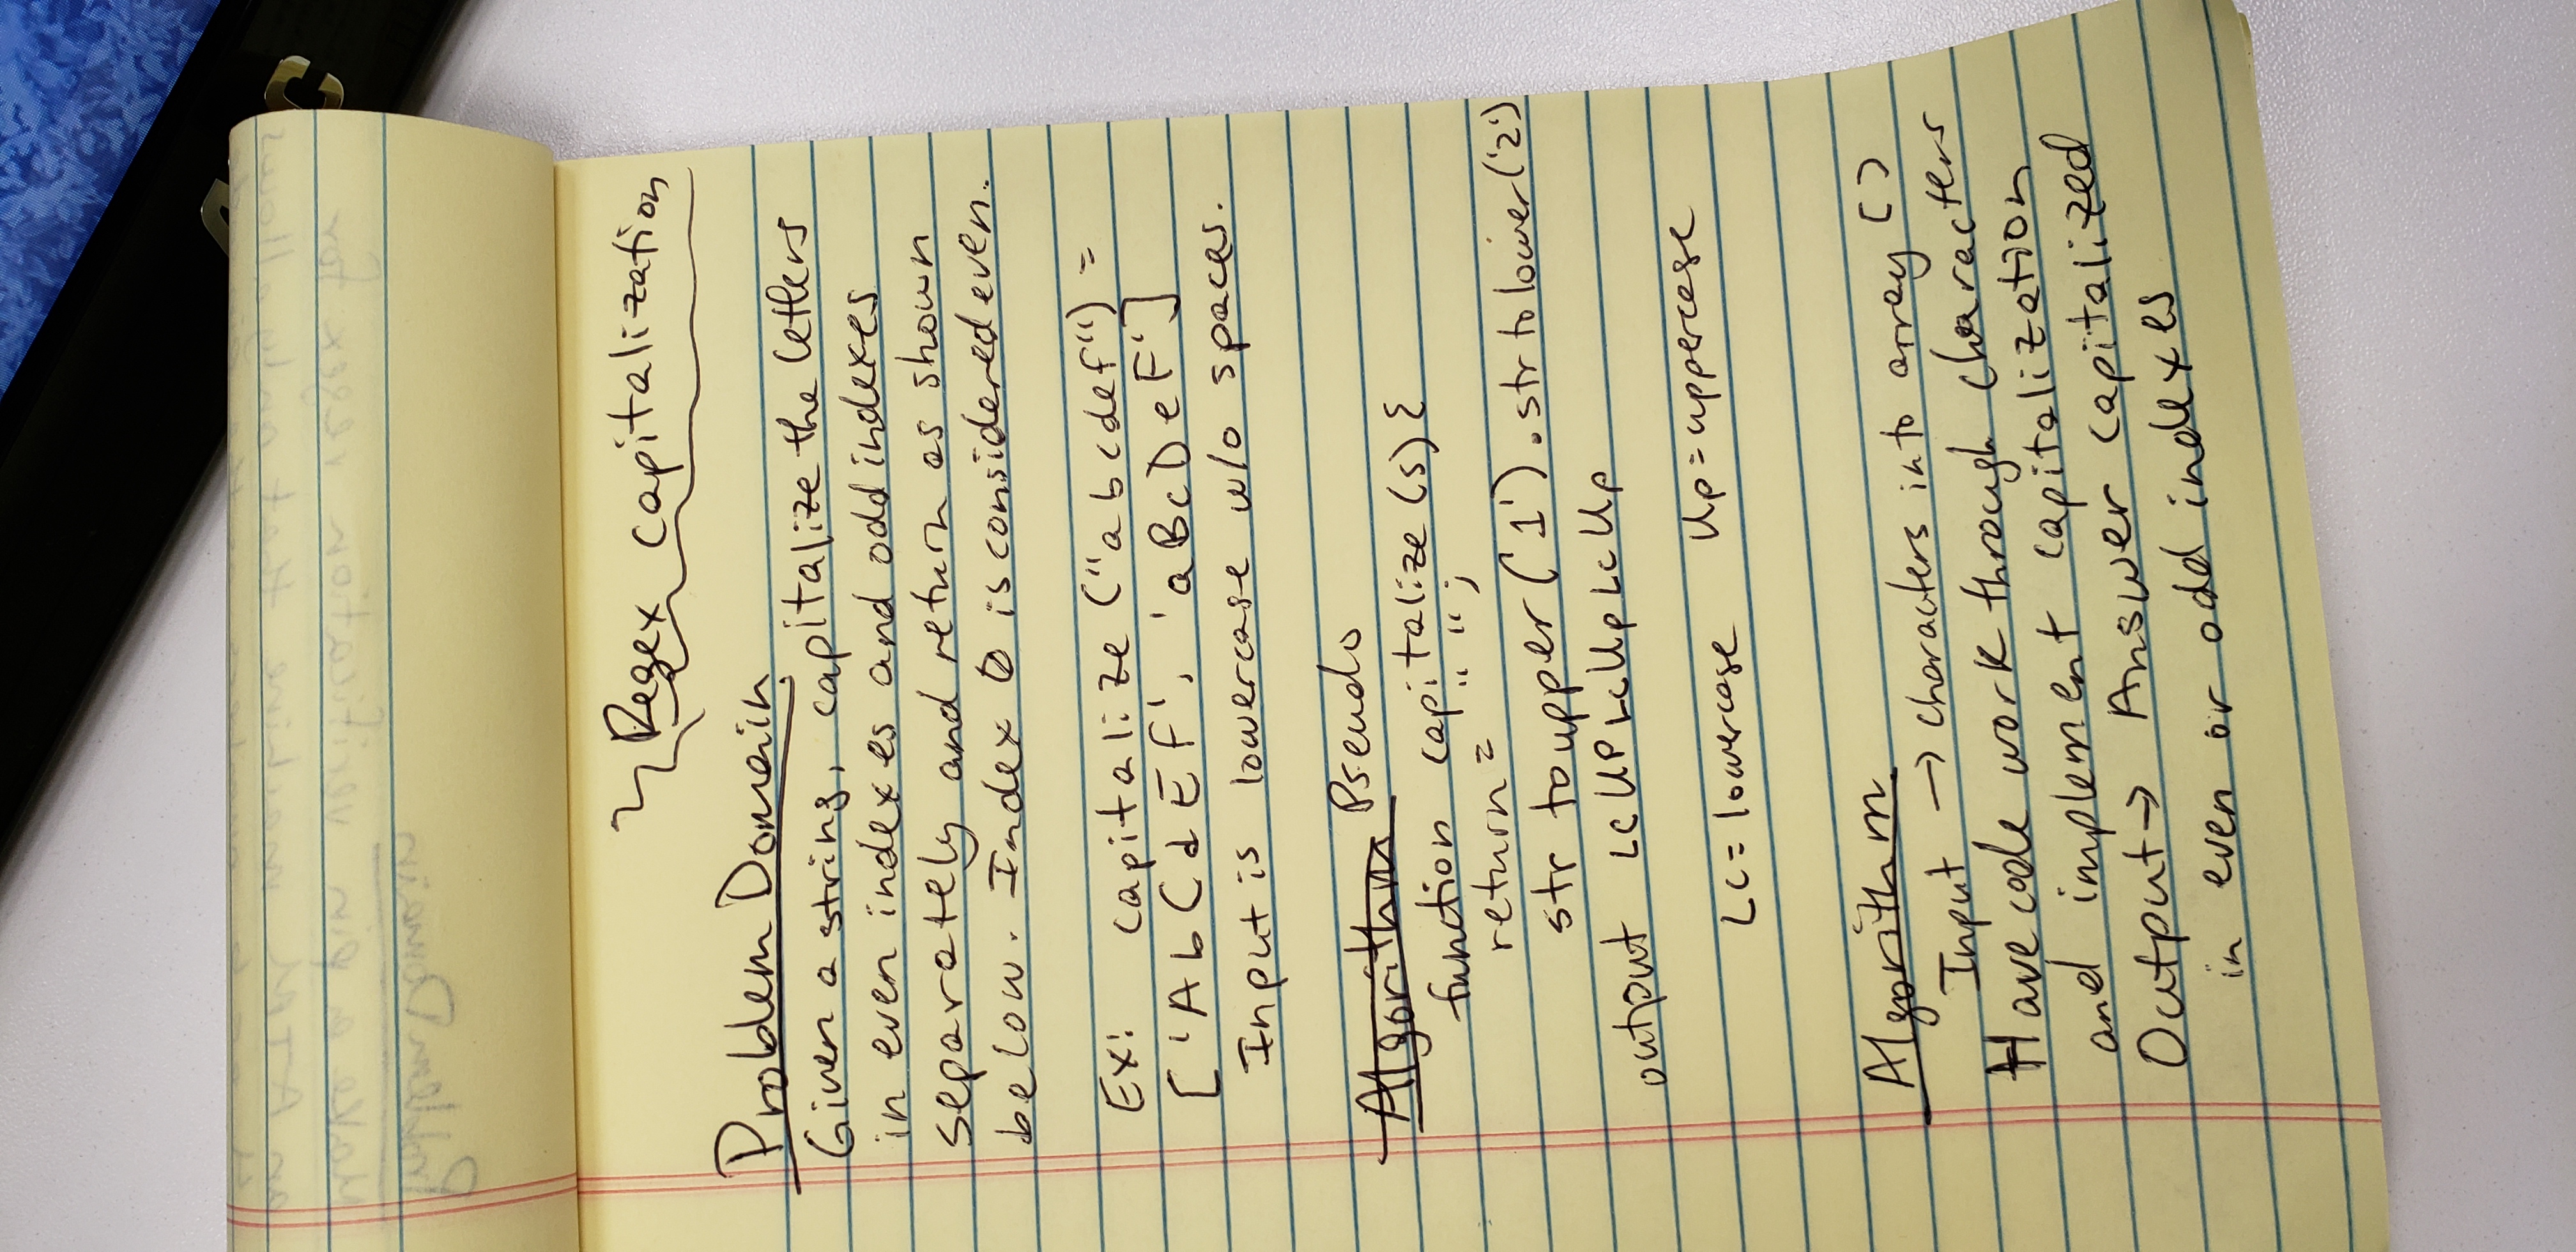 Regex capitalization
Problem Domain
Given a string, capitalize the letters
in even indexes and odd indexes
separately and return as shown
below. Index 0 is considered even.
Ex: capitalize ("abcdef") =
['AbCdEF', 'aBcDeF']
Input is lowercase w/o spaces.
Algorithm Pseudo
function capitalize (s) {
return = " ";
str toupper ('1') . str to lower ('2')
output LC UP Lc Up Lc Up
Lc = lowercase Up = uppercase
Algorithm
Input → characters into array ()
Have code work through characters
and implement capitalization
Output → Answer capitalized
in even or odd indexes